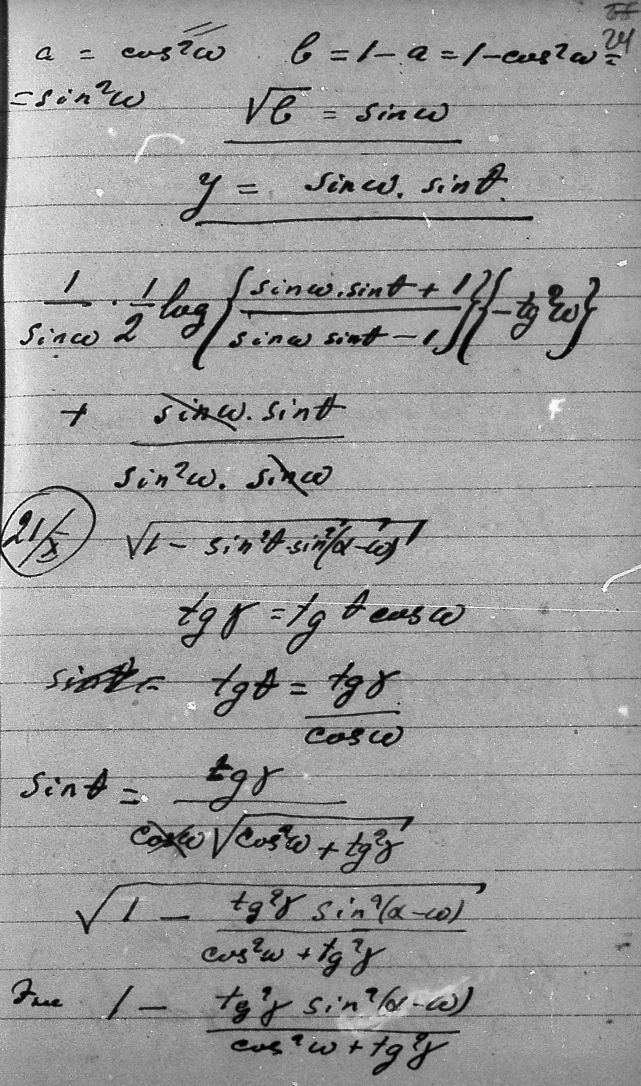 24
a = cos²ω b = 1 - a = 1 - cos²ω =
= sin²ω √b = sin ω
y = sin ω. sin θ.
1/sin ω · 1/2 log {(sin ω. sin θ + 1)/(sin ω sin θ - 1)} {- tg²ω}
+ (sin ω. sin θ)/(sin²ω. sin ω)
21/x √(1 - sin²θ sin²(α-ω))
tg γ = tg θ cos ω
sin θ = tg θ = tg γ/cos ω
sin θ = tg γ/(cos ω √(cos²ω + tg²γ))
√(1 - (tg²γ sin²(α-ω))/(cos²ω + tg²γ))
1 - (tg²γ sin²(α-ω))/(cos²ω + tg²γ)